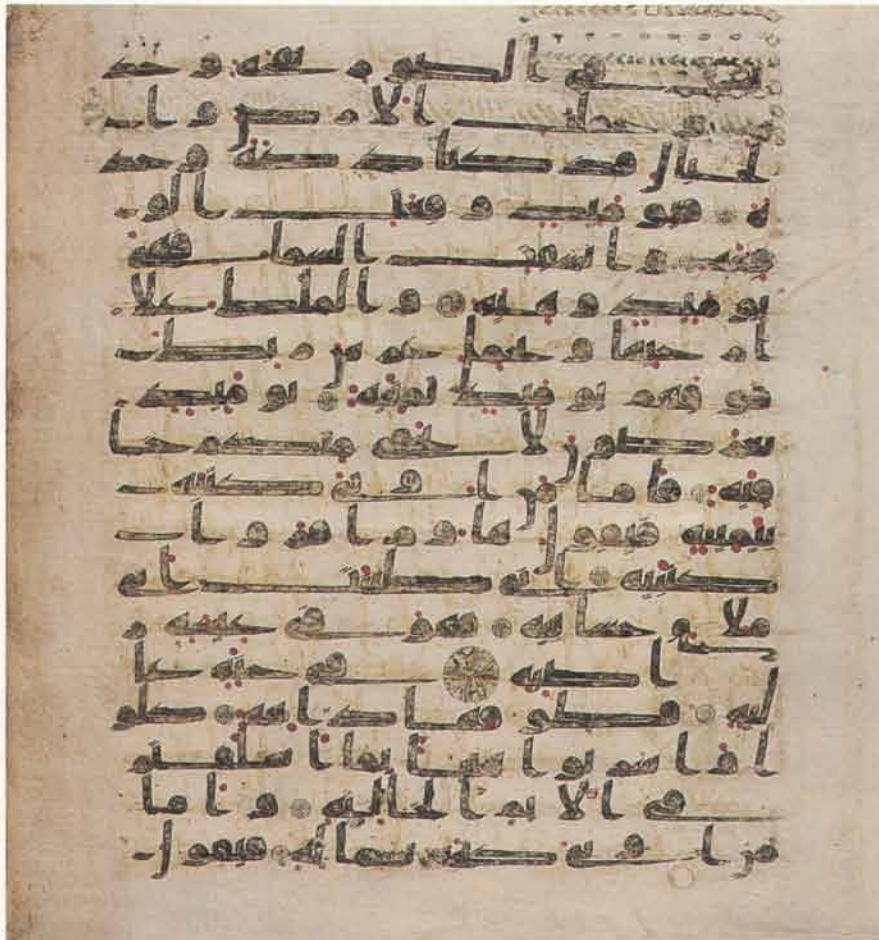 نفخ في الصور نفخة وحد
ة وحملت الارض وا
لجبال فدكتا دكة وحد
ة فيومئذ وقعت الو
قعة وانشقت السما فهي
يومئذ وهية والملك علا
ارجائها ويحمل عرش ربك
فوقهم يومئذ ثمنية يومئذ
تعرضون لا تخفى منكم خا
فية فاما من اوتي كتبه
بيمينه فيقول هاوم اقروا
كتبيه اني ظننت اني
ملق حسابيه فهو في عيشة ر
اضية في جنة عا
لية قطوفها دانية كلو
ا واشربوا هنيا بما اسلفتم
في الايام الخالية واما
من اوتي كتبه بشماله فيقول